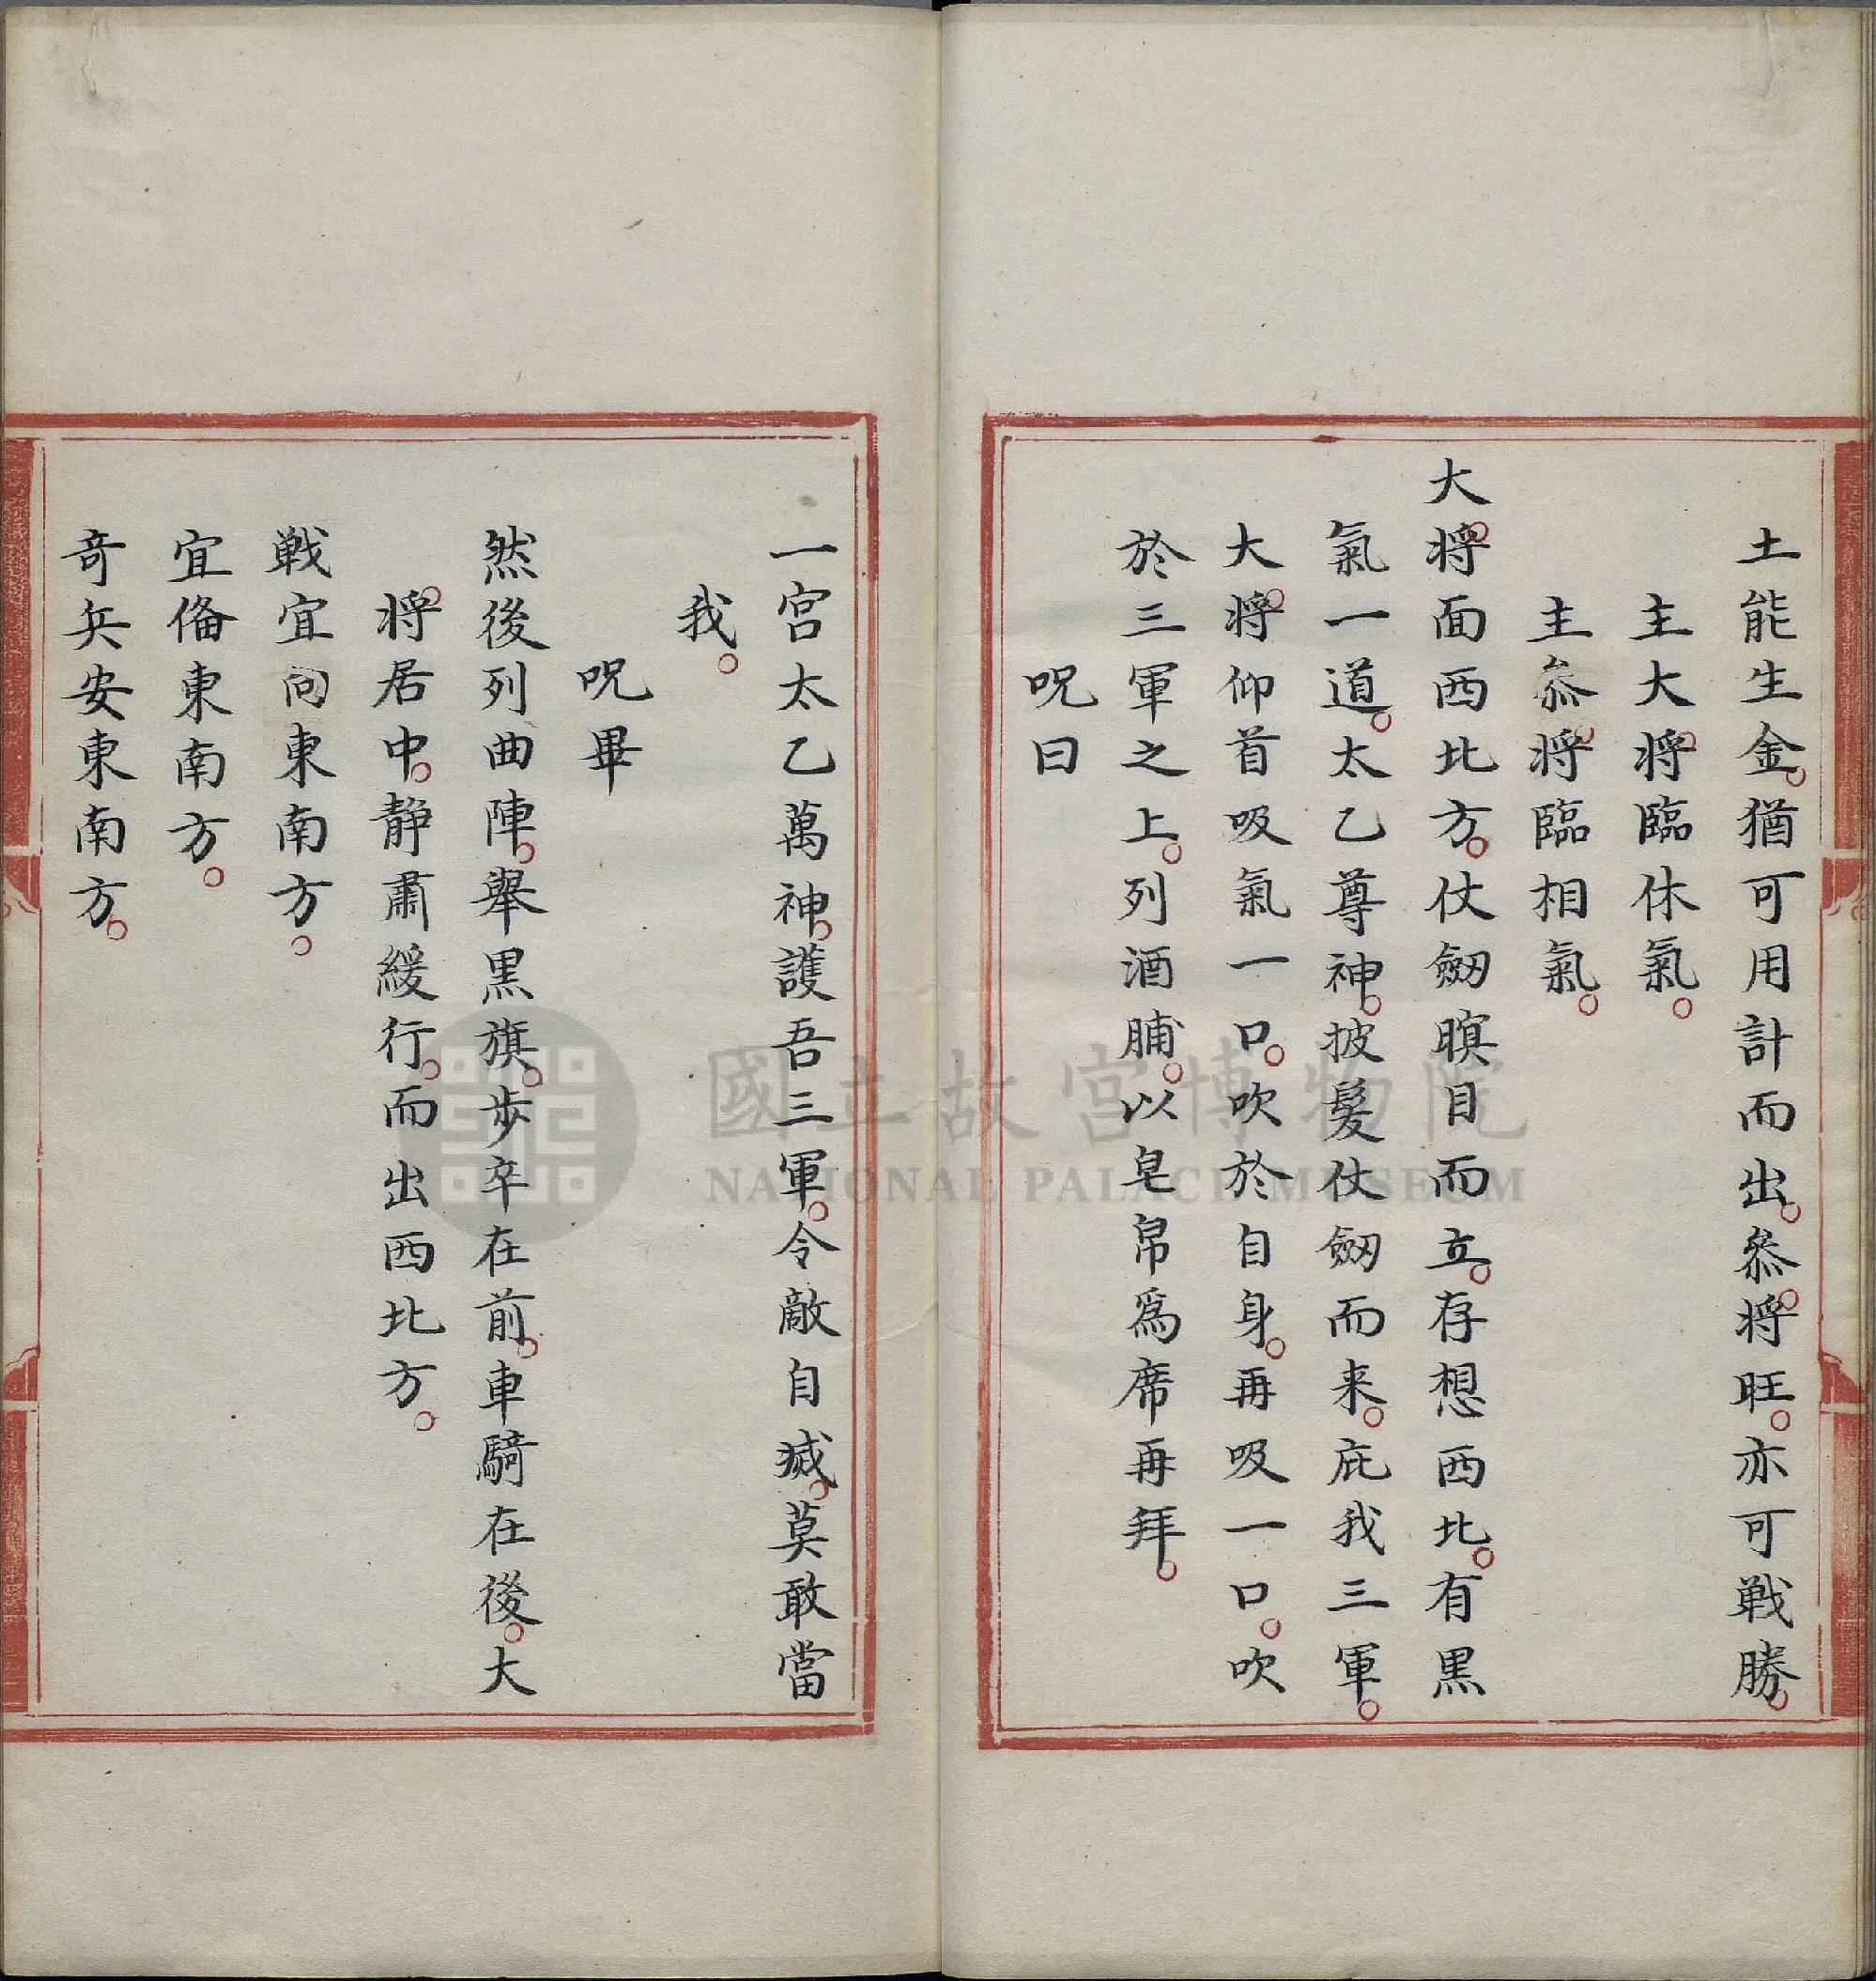 土能生金。猶可用計而出。叅。将旺。亦可戦勝。
主大将。臨休氣。
主叅将。臨相氣。
大将。面西北方。仗劒瞑目而立。存想西北。有黒
氣一道。太乙尊神。披髮仗劒而来。庇我三軍。
大将。仰首吸氣一口。吹於自身。再吸一口。吹
於三軍之上。列酒脯。以皂帛爲席再拜。
呪曰
一宮太乙萬神。護吾三軍。令敵自滅。莫敢當
我。
呪畢
然後列曲陣。舉黒旗。步卒在前。車騎在後。大
将。居中。静肅緩行。而出西北方。
戦宜向東南方。
宜俻東南方。
奇兵安東南方。
國立故宮博物院
NATIONAL PALACE MUSEUM